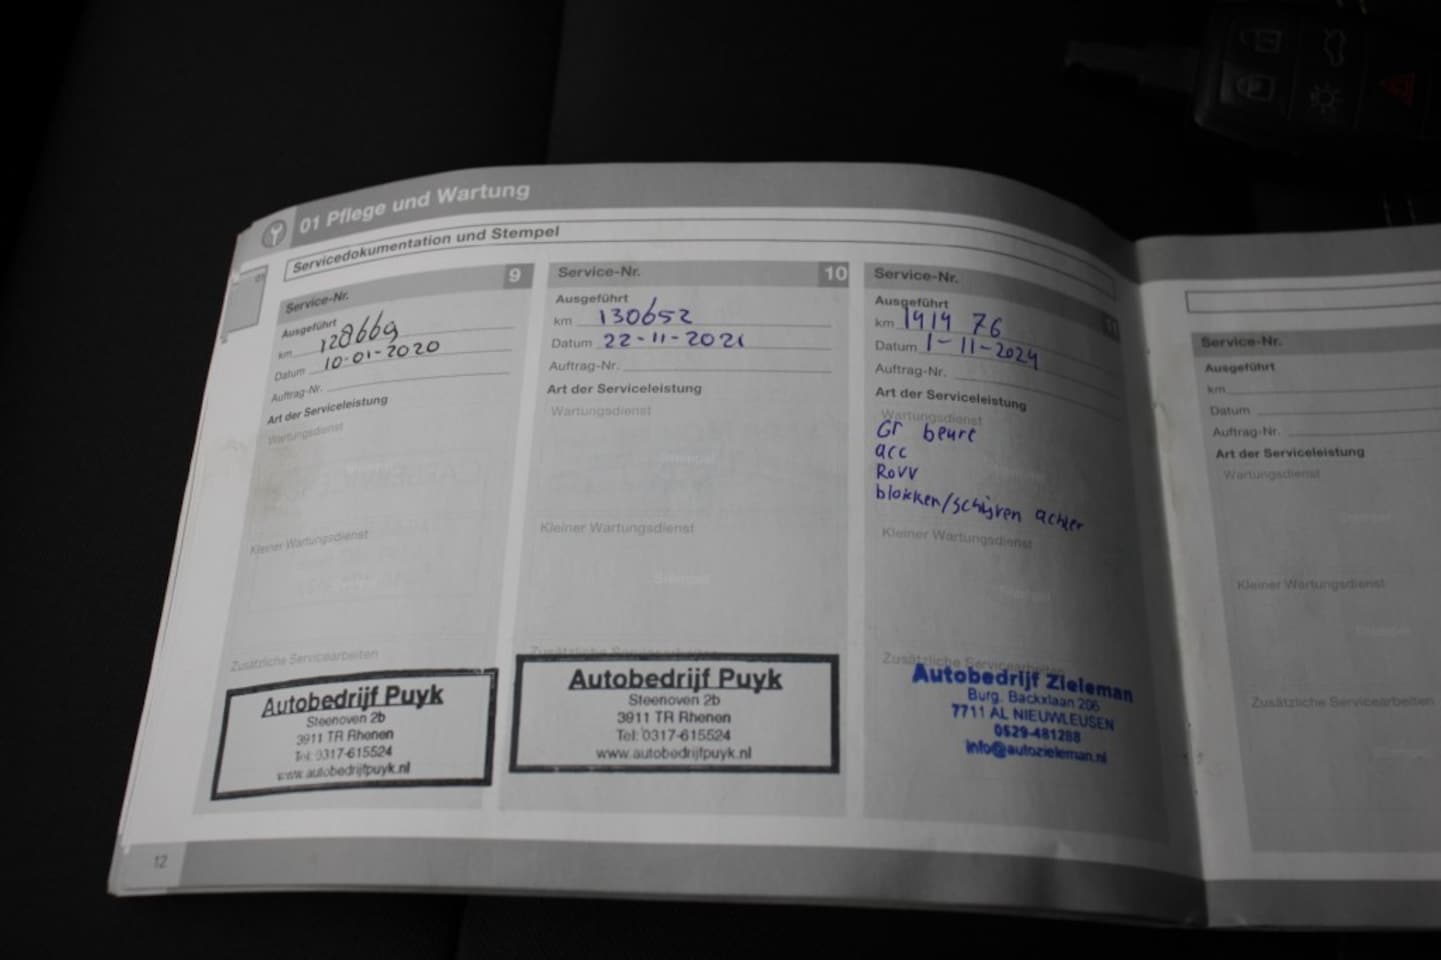 01 Pflege und Wartung
Servicedokumentation und Stempel
Service-Nr. 9
Ausgeführt
km 128669
Datum 10-01-2020
Auftrag-Nr.
Art der Serviceleistung
Wartungsdienst
Kleiner Wartungsdienst
Zusätzliche Servicearbeiten
Autobedrijf Puyk
Steenoven 2b
3911 TR Rhenen
Tel: 0317-615524
www.autobedrijfpuyk.nl
Service-Nr. 10
Ausgeführt
km 130652
Datum 22-11-2021
Auftrag-Nr.
Art der Serviceleistung
Wartungsdienst
Stempel
Kleiner Wartungsdienst
Stempel
Zusätzliche Servicearbeiten
Autobedrijf Puyk
Steenoven 2b
3911 TR Rhenen
Tel: 0317-615524
www.autobedrijfpuyk.nl
Service-Nr. 11
Ausgeführt
km 191976
Datum 1-11-2024
Auftrag-Nr.
Art der Serviceleistung
Wartungsdienst
Gr beure
acc
RoVV
blokken/schijven achter
Kleiner Wartungsdienst
Stempel
Zusätzliche Servicearbeiten
Autobedrijf Zieleman
Burg. Backxlaan 206
7711 AL NIEUWLEUSEN
0529-481288
info@autozieleman.nl
12
Service-Nr.
Ausgeführt
km
Datum
Auftrag-Nr.
Art der Serviceleistung
Wartungsdienst
Stempel
Kleiner Wartungsdienst
Stempel
Zusätzliche Servicearbeiten